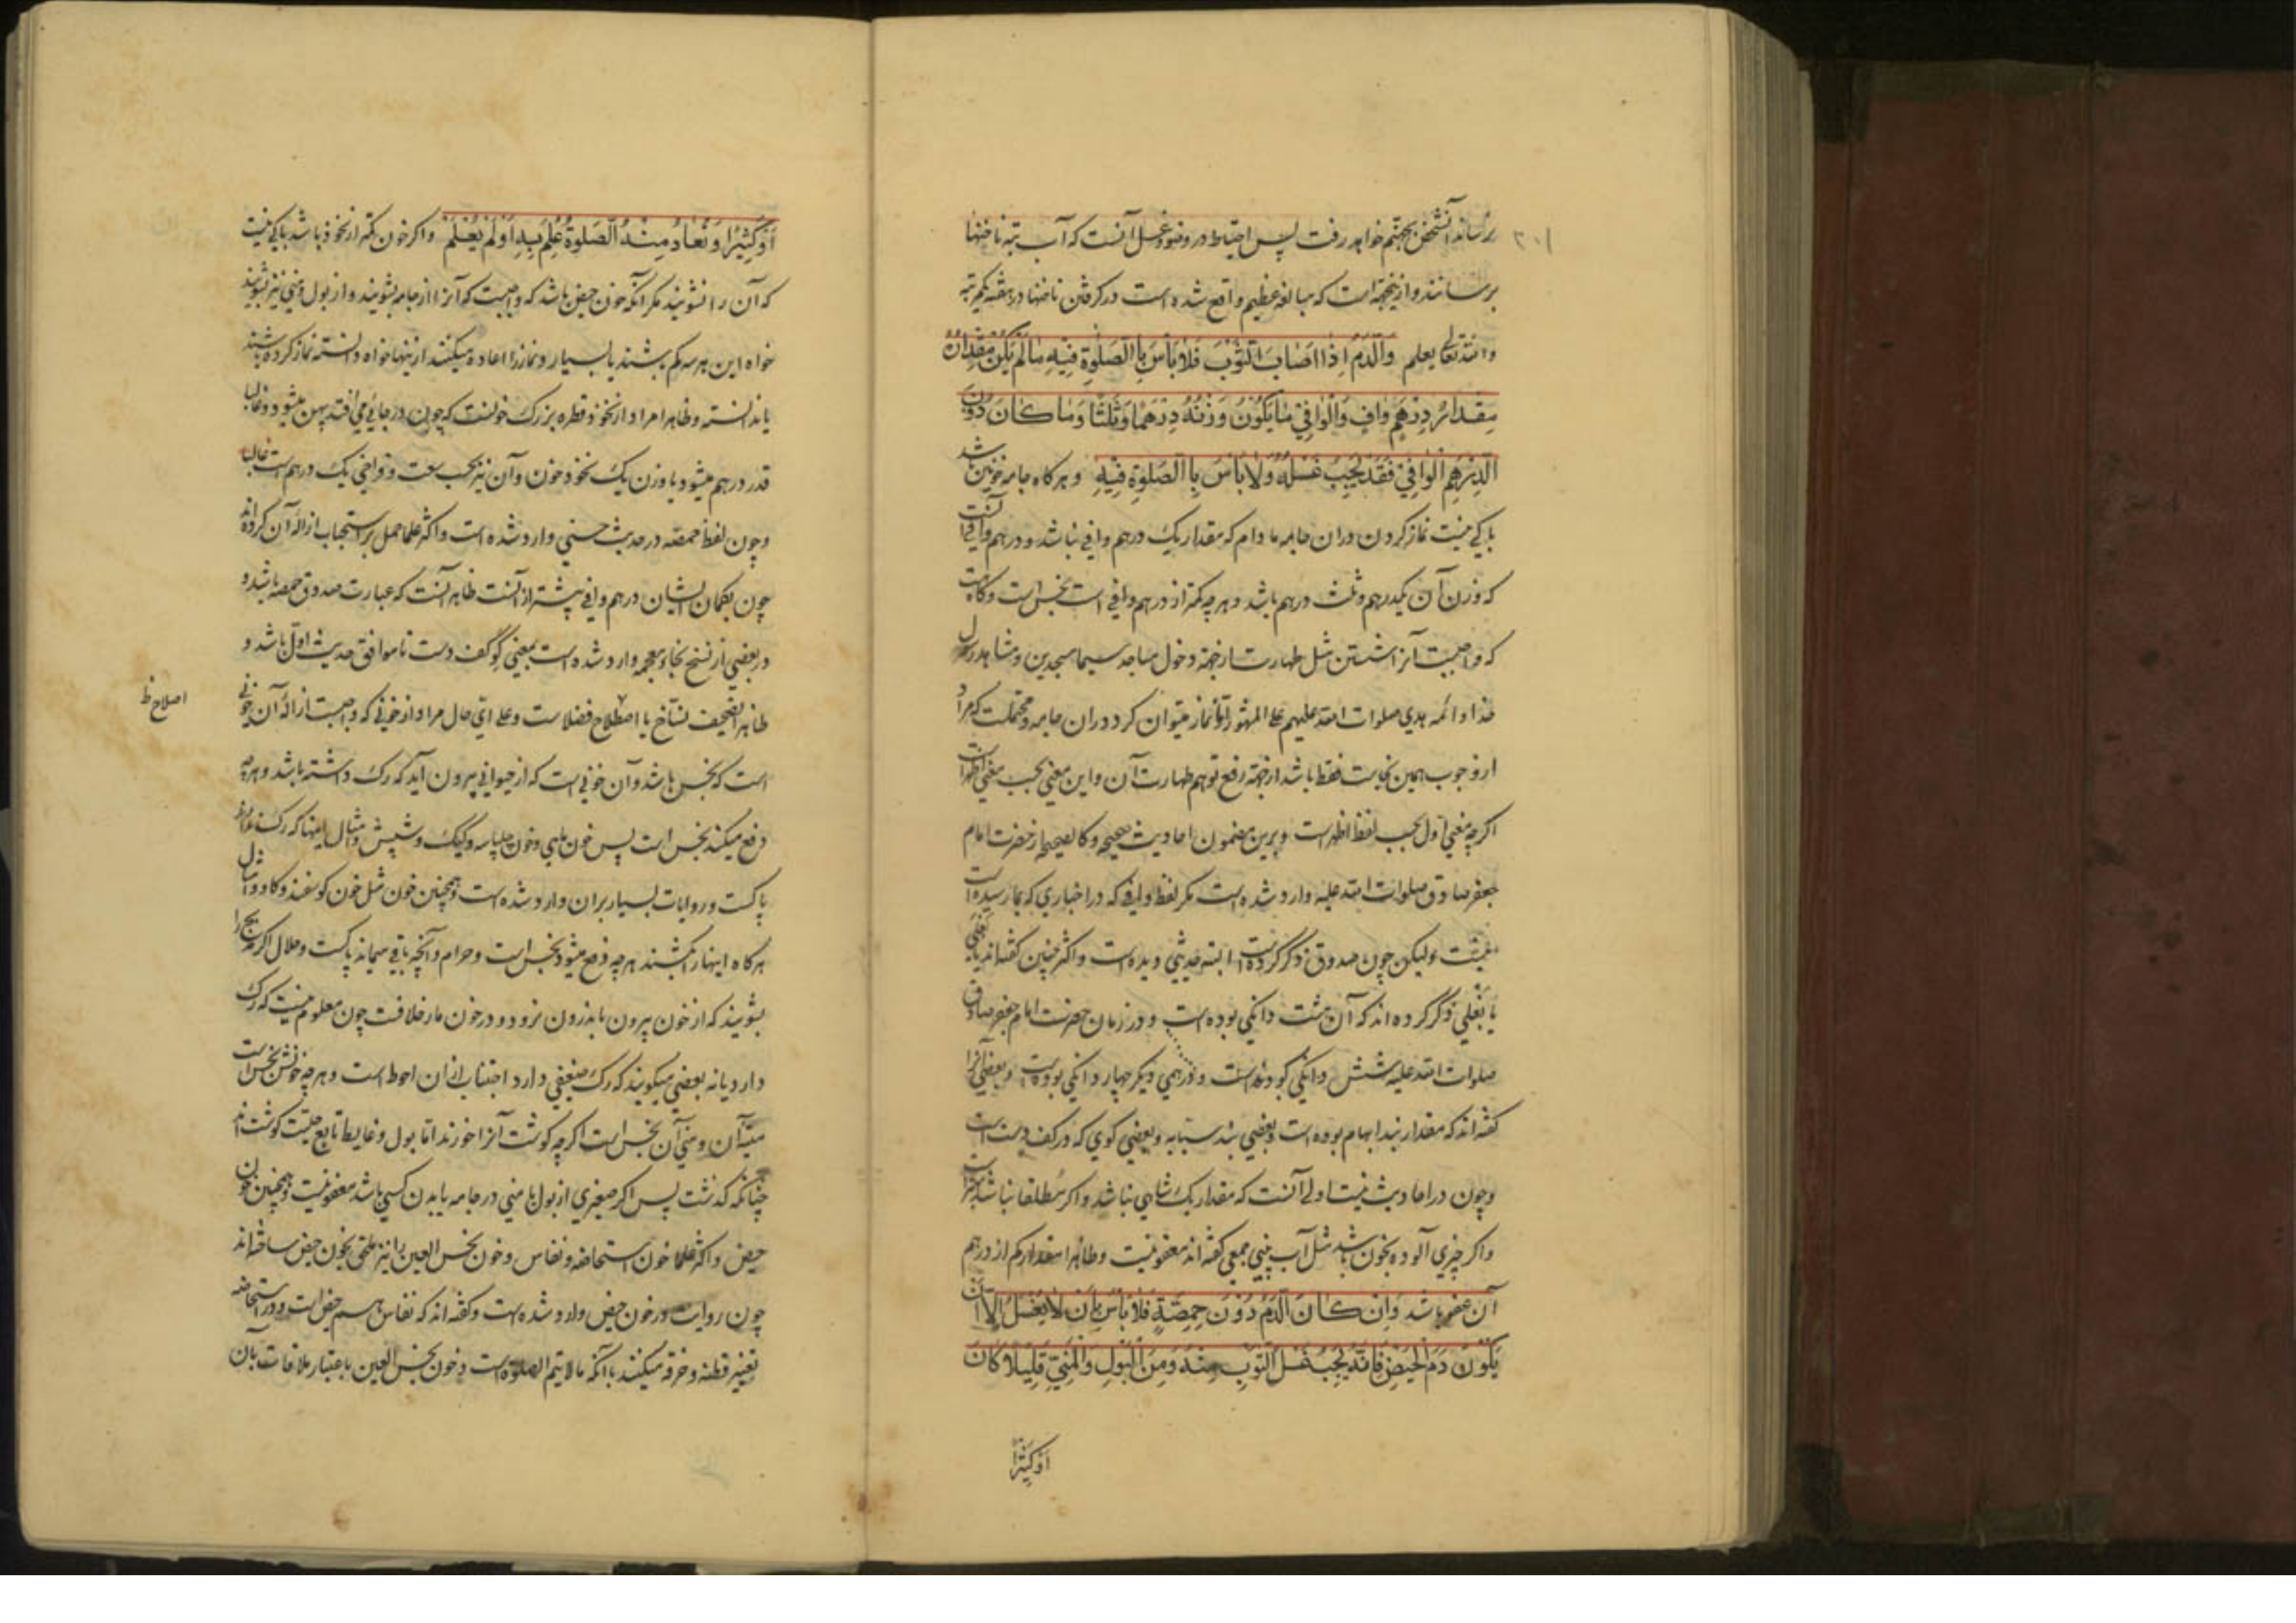 برساند آنشخص بجهنم خواهد رفت پس احتیاط در وضو و غسل آنست که آب بته ناخنها
برسانند و ازینجهة است که مبالغه عظیم واقع شده است در کرفتن ناخنها در هفته یکمرتبه
والله تعالی یعلم وَالدَّمُ اِذَا اَصَابَ الثَّوْبَ فَلَا بَأْسَ بِاالصَّلٰوةِ فِیْهِ مَا لَمْ یَکُنْ مِقْدَارُهُ
مِقْدَارَ دِرْهَمٍ وَافٍ وَالْوَافِیْ مَا یَکُوْنُ وَزْنُهُ دِرْهَمًا وَثُلُثًا وَمَا کَانَ دُوْنَ
الدِّرْهَمِ الْوَافِیْ فَقَدْ یَجِبُ غَسْلُهُ وَلَا بَأْسَ بِاالصَّلٰوةِ فِیْهِ و هرکاه جامه خونین شد
باکی نیست نماز کردن دران جامه ما دام که مقدار یک درهم وافی نباشد و درهم وافی آنست
که وزن آن یکدرهم و ثلث درهم باشد و هرچه کمتر از درهم وافی است نجس است و کاه هست
که واجبست آنرا شستن مثل طهارت از جهة دخول مساجد سیما مسجدین و مشاهد رسول
خدا و ائمه هدی صلوات الله علیهم علی المشهور امّا نماز میتوان کرد دران جامه و محتملست که مراد
از وجوب همین نجاست فقط باشد از جهة رفع توهم طهارت آن و این معنی بحسب معنی اظهر است
اکرچه معنی اول بحسب لفظ اظهر است و برین مضمون احادیث صحیحه و کالصحیحه از حضرت امام
جعفر صادق صلوات الله علیه وارد شده است مکر لفظ وافی که در اخباری که بما رسیده است
نیست ولیکن چون صدوق ذکر کرده است البته حدیثی دیده است و اکثر چنین کفته‌اند
یا بغلی ذکر کرده اند که آن هشت دانکی بوده است و در زمان حضرت امام جعفر صادق
صلوات الله علیه شش دانکی بوده است و درهمی دیکر چهار دانکی بوده است و بعضی آنرا
کفته اند که مقدار بند ابهام بوده است و بعضی بند سبابه و بعضی کوی که در کف دست است
و چون در احادیث نیست اولی آنست که مقدار یک شاهی نباشد و اکر مطلقا نباشد بهتر است
و اکر چیزی آلوده بخون باشد مثل آب بینی جمعی کفته اند معفو نیست و ظاهرا مقدار کم از درهم
آن عفو باشد وَاِنْ کَانَ الدَّمُ دُوْنَ حِمِّصَةٍ فَلَا بَأْسَ بِاَنْ لَا یُغْسَلَ اِلَّا اَنْ
یَکُوْنَ دَمَ الْحَیْضِ فَاِنَّهُ یَجِبُ غَسْلُ الثَّوْبِ مِنْهُ وَمِنَ الْبَوْلِ وَالْمَنِیِّ قَلِیْلًا کَانَ
اَوْ کَثِیْرًا
اَوْ کَثِیْرًا وَ تُعَادُ مِنْهُ الصَّلٰوةُ عُلِمَ بِهِ اَوْ لَمْ یُعْلَمْ و اکر خون کمتر از نخود باشد باکی نیست
که آن را نشویند مکر آنکه خون حیض باشد که واجبست که آنرا از جامه بشویند و از بول و منی نیز بشویند
خواه این هر سه کم باشند یا بسیار و نماز را اعاده میکنند از ینها خواه دانسته نماز کرده باشند
یا ندانسته و ظاهرا مراد از نخود قطره بزرک خونست که چون در جائی می افتد پهن میشود و غالبا
قدر درهم میشود یا وزن یک نخود خون و آن نیز بحسب سعت و فراخی یک درهم است غالبا
و چون لفظ حمصه در حدیث حسنی وارد شده است و اکثر علما حمل بر استحباب ازاله آن کرده‌اند
چون بکمان ایشان درهم وافی بیشتر از آنست ظاهر آنست که عبارت صدوق حمصه باشد و
در بعضی از نسخ بخاء معجمه وارد شده است بمعنی کو کف دست تا موافق حدیث اول باشد و
ظاهرا تصحیف نساخ یا اصطلاح فضلاست و علی ایّ حال مراد از خونی که واجبست ازاله آن خونی
اصلاح ظ
است که نجس باشد و آن خونی است که از حیوانی بیرون آید که رک داشته باشد و هرچه
دفع میکند نجس است پس خون ماهی و خون چلپاسه و کیک و شپش و امثال اینها که رک ندارد
پاکست و روایات بسیار بران وارد شده است و همچنین خون مثل خون کوسفند و کاو و امثال
هرکاه اینها را بکشند هرچه دفع میشود نجس است و حرام و آنچه باقی میماند پاکست و حلال اکر
بشویند که از خون بیرون باندرون نرود و در خون مار خلافست چون معلوم نیست که رک
دارد یا نه بعضی میکویند که رک ضعیفی دارد اجتناب از ان احوط است و هرچه خونش نجس است
میته آن و منی آن نجس است اکرچه کوشت آنرا خورند اما بول و غایط تابع حلیت کوشت‌اند
چنانکه کذشت پس اکر صغیری از بول یا منی در جامه یا بدن کسی باشد معفو نیست و همچنین خون
حیض و اکثر علما خون استحاضه و نفاس و خون نجس العین را نیز ملحق بخون حیض ساخته‌اند
چون روایت در خون حیض وارد شده است و کفته اند که نفاس هم حیض است و در استحاضه
تغییر قطنه و خرقه میکنند با آنکه ما لا یتم الصلوة است و خون نجس العین باعتبار ملاقات بآن